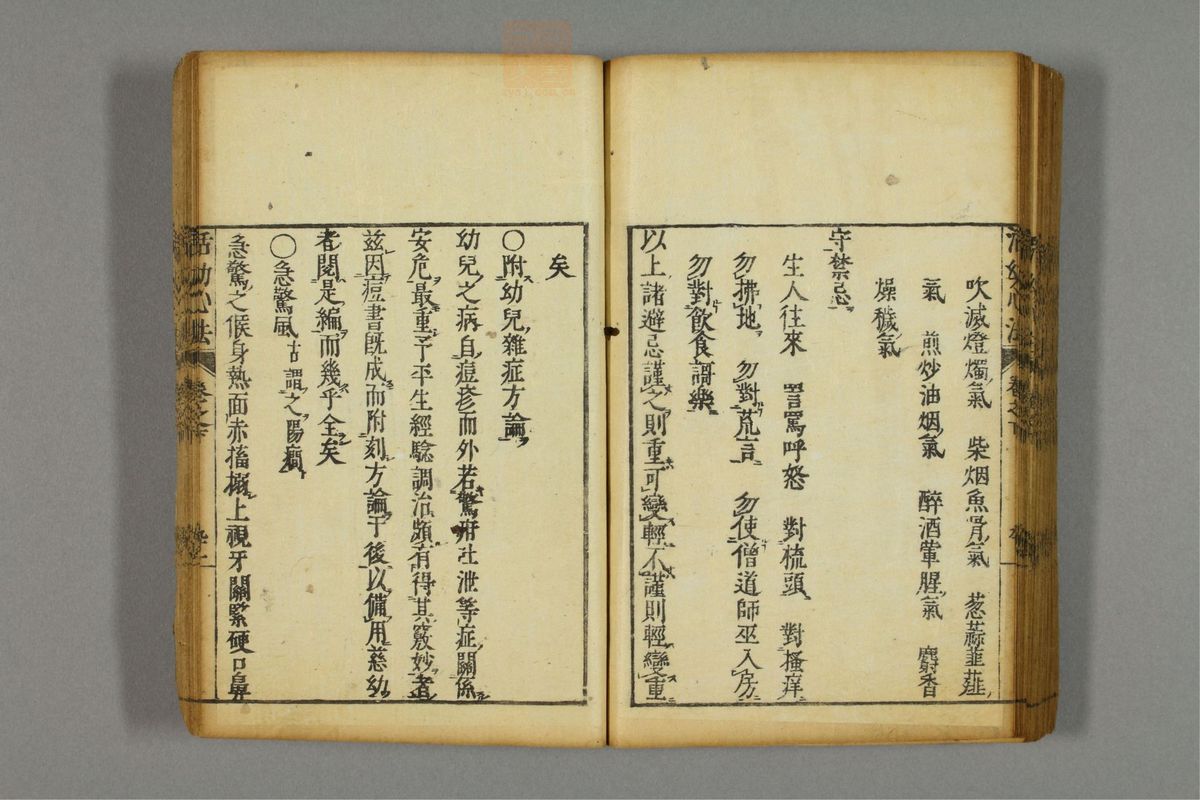 吹滅燈燭氣　柴烟魚骨氣　葱蒜韭薤
氣　煎炒油烟氣　醉酒葷腥氣　麝香
燥穢氣
守禁忌
生人往來　詈罵呼怒　對梳頭　對搔痒
勿掃地　勿對荒言　勿使僧道師巫入房
勿對飲食謌樂
以上諸避忌謹之則重可變輕不謹則輕變重
矣
○附幼兒雜症方論
幼兒之病自痘疹而外若驚疳吐泄等症關係
安危最重予平生經驗調治頗有得其竅妙者
茲因痘書既成而附刻方論于後以備用慈幼
者閱是編而幾乎全矣
○急驚風古謂之陽癎
急驚之候身熱面赤搐搦上視牙關緊硬口鼻
活幼心法
卷之